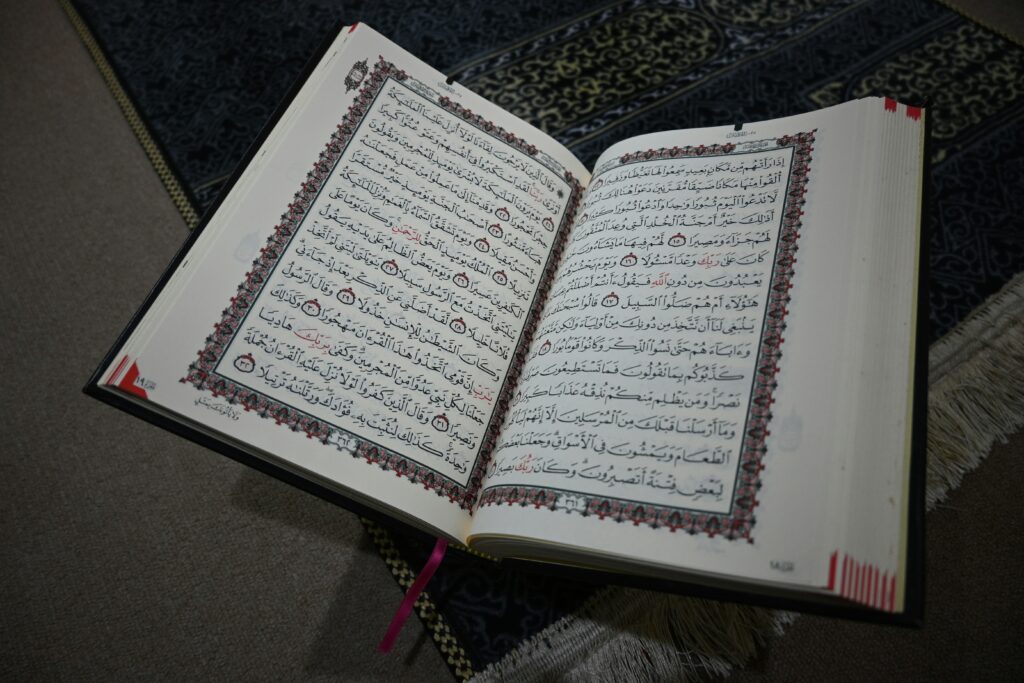 إِذَا رَأَتْهُم مِّن مَّكَانٍ بَعِيدٍ سَمِعُوا۟ لَهَا تَغَيُّظًا وَزَفِيرًا
أُلْقُوا۟ مِنْهَا مَكَانًا ضَيِّقًا مُّقَرَّنِينَ دَعَوْا۟ هُنَالِكَ
لَّا تَدْعُوا۟ ٱلْيَوْمَ ثُبُورًا وَٰحِدًا وَٱدْعُوا۟ ثُبُورًا كَثِيرًا
أَذَٰلِكَ خَيْرٌ أَمْ جَنَّةُ ٱلْخُلْدِ ٱلَّتِى وُعِدَ ٱلْمُتَّقُونَ
لَهُمْ جَزَآءً وَمَصِيرًا ١٥ لَّهُمْ فِيهَا مَا يَشَآءُونَ
كَانَ عَلَىٰ رَبِّكَ وَعْدًا مَّسْـُٔولًا ١٦ وَيَوْمَ يَحْشُرُهُمْ
يَعْبُدُونَ مِن دُونِ ٱللَّهِ فَيَقُولُ ءَأَنتُمْ أَضْلَلْتُمْ
هَٰٓؤُلَآءِ أَمْ هُمْ ضَلُّوا۟ ٱلسَّبِيلَ ١٧ قَالُوا۟ سُبْحَٰنَكَ
يَنۢبَغِى لَنَآ أَن نَّتَّخِذَ مِن دُونِكَ مِنْ أَوْلِيَآءَ وَلَٰكِن
وَءَابَآءَهُمْ حَتَّىٰ نَسُوا۟ ٱلذِّكْرَ وَكَانُوا۟ قَوْمًۢا بُورًا
كَذَّبُوكُم بِمَا تَقُولُونَ فَمَا تَسْتَطِيعُونَ
نَصْرًا وَمَن يَظْلِم مِّنكُمْ نُذِقْهُ عَذَابًا كَبِيرًا
وَمَآ أَرْسَلْنَا قَبْلَكَ مِنَ ٱلْمُرْسَلِينَ إِلَّآ إِنَّهُمْ
ٱلطَّعَامَ وَيَمْشُونَ فِى ٱلْأَسْوَاقِ وَجَعَلْنَا بَعْضَكُمْ
لِبَعْضٍ فِتْنَةً أَتَصْبِرُونَ وَكَانَ رَبُّكَ بَصِيرًا
٣٦١
الجزء ١٨
وَقَالَ ٱلَّذِينَ لَا يَرْجُونَ لِقَآءَنَا لَوْلَآ أُنزِلَ عَلَيْنَا ٱلْمَلَٰٓئِكَةُ
أَوْ نَرَىٰ رَبَّنَا لَقَدِ ٱسْتَكْبَرُوا۟ فِىٓ أَنفُسِهِمْ وَعَتَوْ عُتُوًّا كَبِيرًا
٢١ يَوْمَ يَرَوْنَ ٱلْمَلَٰٓئِكَةَ لَا بُشْرَىٰ يَوْمَئِذٍ لِّلْمُجْرِمِينَ وَيَقُولُونَ
حِجْرًا مَّحْجُورًا ٢٢ وَقَدِمْنَآ إِلَىٰ مَا عَمِلُوا۟ مِنْ عَمَلٍ فَجَعَلْنَٰهُ
هَبَآءً مَّنثُورًا ٢٣ أَصْحَٰبُ ٱلْجَنَّةِ يَوْمَئِذٍ خَيْرٌ مُّسْتَقَرًّا
وَأَحْسَنُ مَقِيلًا ٢٤ وَيَوْمَ تَشَقَّقُ ٱلسَّمَآءُ بِٱلْغَمَٰمِ وَنُزِّلَ ٱلْمَلَٰٓئِكَةُ
تَنزِيلًا ٢٥ ٱلْمُلْكُ يَوْمَئِذٍ ٱلْحَقُّ لِلرَّحْمَٰنِ وَكَانَ يَوْمًا عَلَى
ٱلْكَٰفِرِينَ عَسِيرًا ٢٦ وَيَوْمَ يَعَضُّ ٱلظَّالِمُ عَلَىٰ يَدَيْهِ يَقُولُ
يَٰلَيْتَنِى ٱتَّخَذْتُ مَعَ ٱلرَّسُولِ سَبِيلًا ٢٧ يَٰوَيْلَتَىٰ لَيْتَنِى لَمْ أَتَّخِذْ
فُلَانًا خَلِيلًا ٢٨ لَّقَدْ أَضَلَّنِى عَنِ ٱلذِّكْرِ بَعْدَ إِذْ جَآءَنِى
وَكَانَ ٱلشَّيْطَٰنُ لِلْإِنسَٰنِ خَذُولًا ٢٩ وَقَالَ ٱلرَّسُولُ
يَٰرَبِّ إِنَّ قَوْمِى ٱتَّخَذُوا۟ هَٰذَا ٱلْقُرْءَانَ مَهْجُورًا ٣٠ وَكَذَٰلِكَ
جَعَلْنَا لِكُلِّ نَبِىٍّ عَدُوًّا مِّنَ ٱلْمُجْرِمِينَ وَكَفَىٰ بِرَبِّكَ هَادِيًا
وَنَصِيرًا ٣١ وَقَالَ ٱلَّذِينَ كَفَرُوا۟ لَوْلَا نُزِّلَ عَلَيْهِ ٱلْقُرْءَانُ جُمْلَةً
وَٰحِدَةً كَذَٰلِكَ لِنُثَبِّتَ بِهِۦ فُؤَادَكَ وَرَتَّلْنَٰهُ تَرْتِيلًا ٣٢
٣٦٢
الجزء ١٩